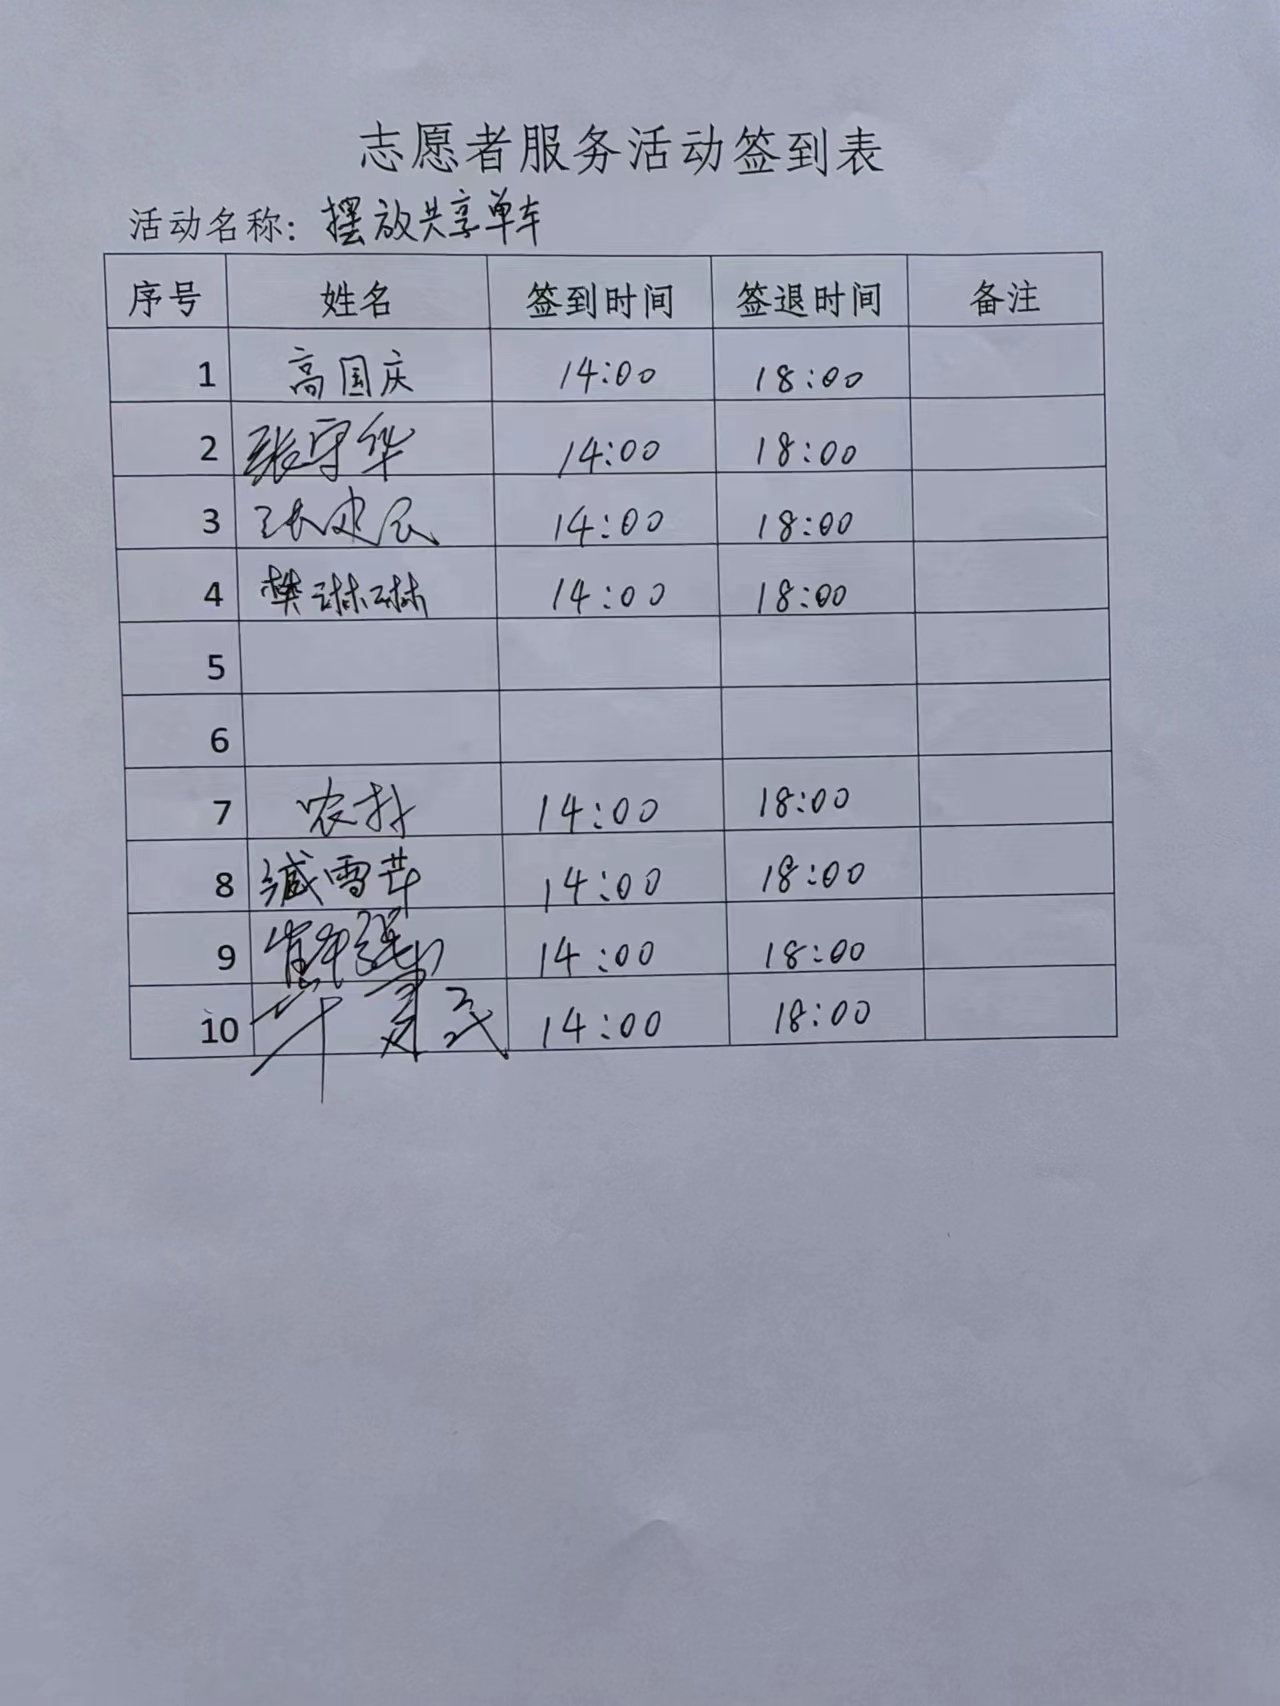 志愿者服务活动签到表
活动名称: 摆放共享单车
序号 姓名 签到时间 签退时间 备注
1 高国庆 14:00 18:00
2 张守华 14:00 18:00
3 张建民 14:00 18:00
4 樊琳琳 14:00 18:00
5
6
7 14:00 18:00
8 臧雪芹 14:00 18:00
9 14:00 18:00
10 14:00 18:00